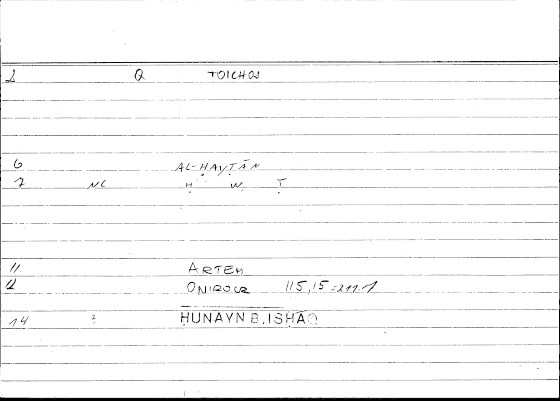 2 Q TOICHOS
6 AL-ḤAYṬĀN
7 NC Ḥ W Ṭ
11 ARTEM
12 ONIROCR 115,15 = 211.1
14 2 ḤUNAYN B. ISḤĀQ